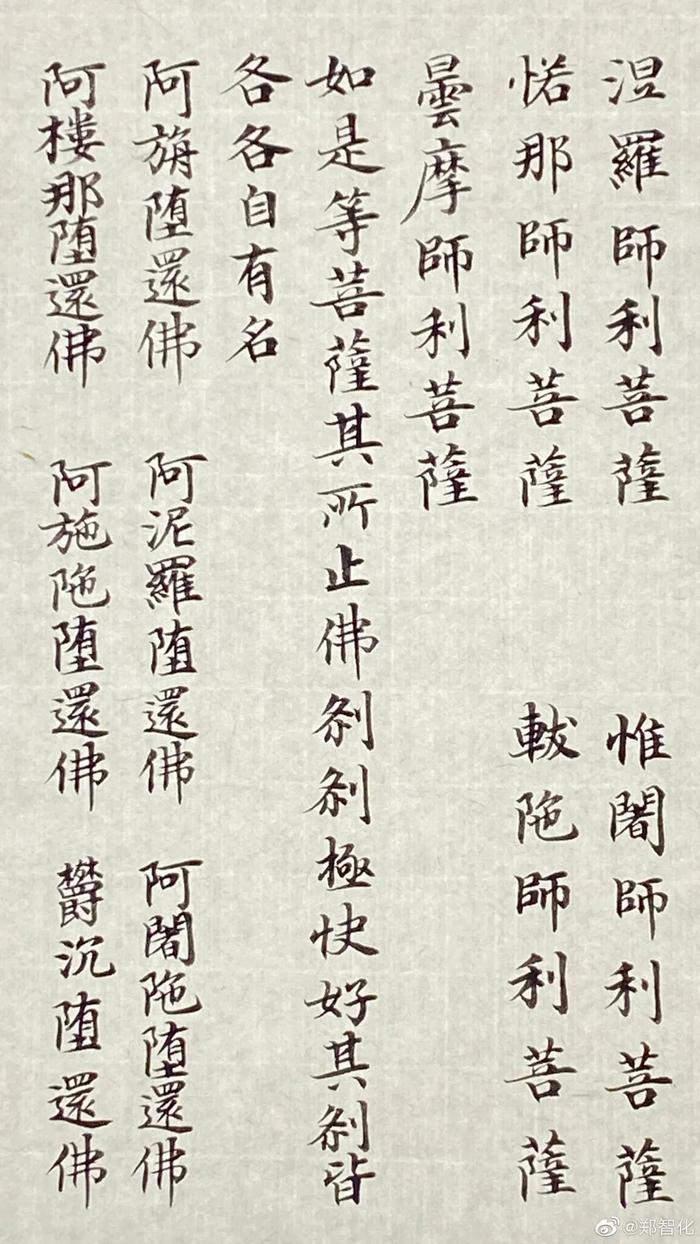 涅羅師利菩薩 惟闍師利菩薩
惒那師利菩薩 軷陁師利菩薩
曇摩師利菩薩
如是等菩薩其所止佛剎剎極快好其剎皆
各各自有名
阿旃堕還佛 阿泥羅堕還佛 阿闍陁堕還佛
阿樓那堕還佛 阿施陁堕還佛 欝沉堕還佛
@郑智化